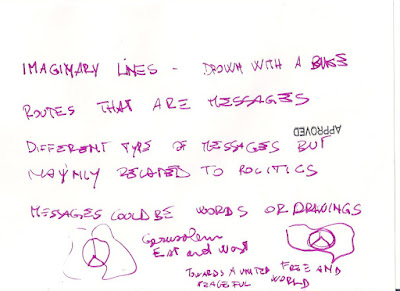 IMAGINARY LINES - DROWN WITH A BIKE
ROUTES THAT ARE MESSAGES
APPROVED
DIFFERENT TYPE OF MESSAGES BUT
MAYNLY RELATED TO POLITICS
MESSAGES COULD BE WORDS OR DRAWINGS
Gerusalem
East and West
TOWARDS A UNITED FREE AND
PEACEFUL WORLD